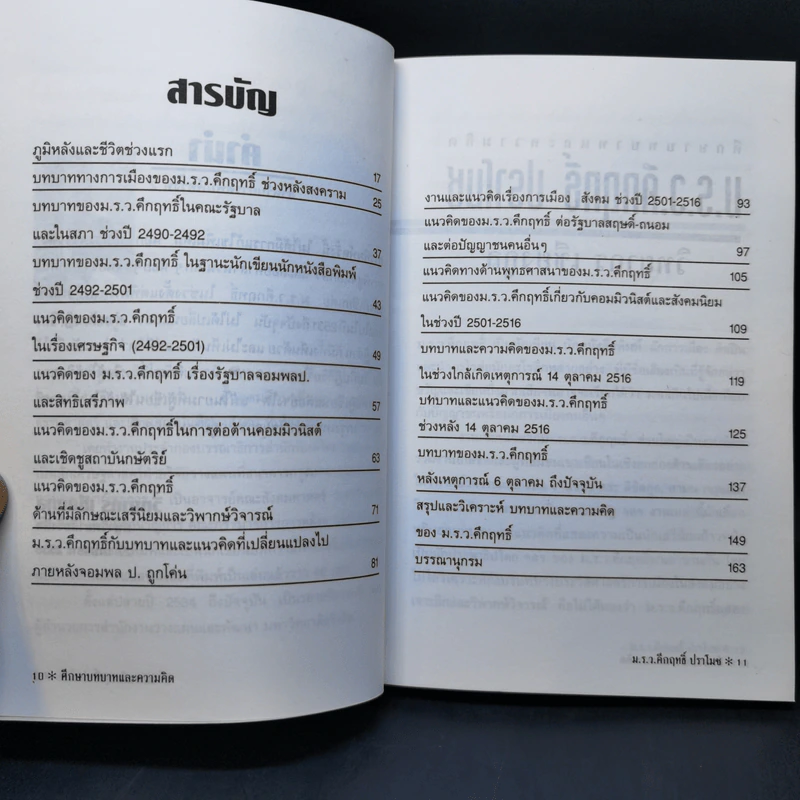 สารบัญ
ภูมิหลังและชีวิตช่วงแรก 17
บทบาททางการเมืองของม.ร.ว.คึกฤทธิ์ ช่วงหลังสงคราม 25
บทบาทของม.ร.ว.คึกฤทธิ์ในคณะรัฐบาล
และในสภา ช่วงปี 2490-2492 37
บทบาทของม.ร.ว.คึกฤทธิ์ ในฐานะนักเขียนนักหนังสือพิมพ์
ช่วงปี 2492-2501 43
แนวคิดของม.ร.ว.คึกฤทธิ์
ในเรื่องเศรษฐกิจ (2492-2501) 49
แนวคิดของ ม.ร.ว.คึกฤทธิ์ เรื่องรัฐบาลจอมพลป.
และสิทธิเสรีภาพ 57
แนวคิดของม.ร.ว.คึกฤทธิ์ในการต่อต้านคอมมิวนิสต์
และเชิดชูสถาบันกษัตริย์ 63
แนวคิดของม.ร.ว.คึกฤทธิ์
ด้านที่มีลักษณะเสรีนิยมและวิพากษ์วิจารณ์ 71
ม.ร.ว.คึกฤทธิ์กับบทบาทและแนวคิดที่เปลี่ยนแปลงไป
ภายหลังจอมพล ป. ถูกโค่น 81
10 * ศึกษาบทบาทและความคิด
งานและแนวคิดเรื่องการเมือง สังคม ช่วงปี 2501-2516 93
แนวคิดของม.ร.ว.คึกฤทธิ์ ต่อรัฐบาลสฤษดิ์-ถนอม
และต่อปัญญาชนคนอื่นๆ 97
แนวคิดทางด้านพุทธศาสนาของม.ร.ว.คึกฤทธิ์ 105
แนวคิดของม.ร.ว.คึกฤทธิ์เกี่ยวกับคอมมิวนิสต์และสังคมนิยม
ในช่วงปี 2501-2516 109
บทบาทและความคิดของม.ร.ว.คึกฤทธิ์
ในช่วงใกล้เกิดเหตุการณ์ 14 ตุลาคม 2516 119
บทบาทและแนวคิดของม.ร.ว.คึกฤทธิ์
ช่วงหลัง 14 ตุลาคม 2516 125
บทบาทของม.ร.ว.คึกฤทธิ์
หลังเหตุการณ์ 6 ตุลาคม ถึงปัจจุบัน 137
สรุปและวิเคราะห์ บทบาทและความคิด
ของ ม.ร.ว.คึกฤทธิ์ 149
บรรณานุกรม 163
ม.ร.ว.คึกฤทธิ์ ปราโมช * 11